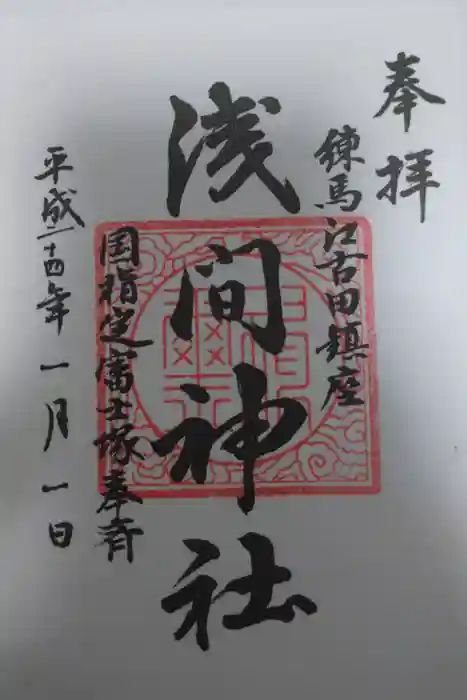 奉拝
練馬江古田鎮座
浅間神社
国指定富士塚奉斎
平成二十四年一月一日